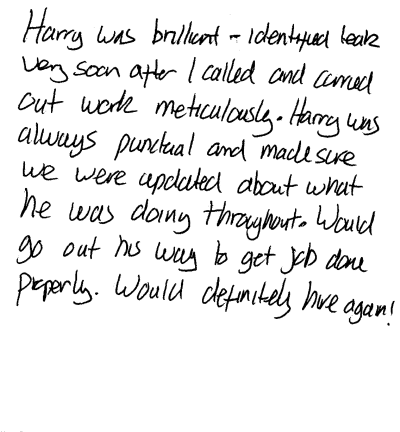 Harry was brilliant - identified leak
very soon after I called and carried
out work meticulously. Harry was
always punctual and made sure
we were updated about what
he was doing throughout. Would
go out his way to get job done
properly. Would definitely hire again!